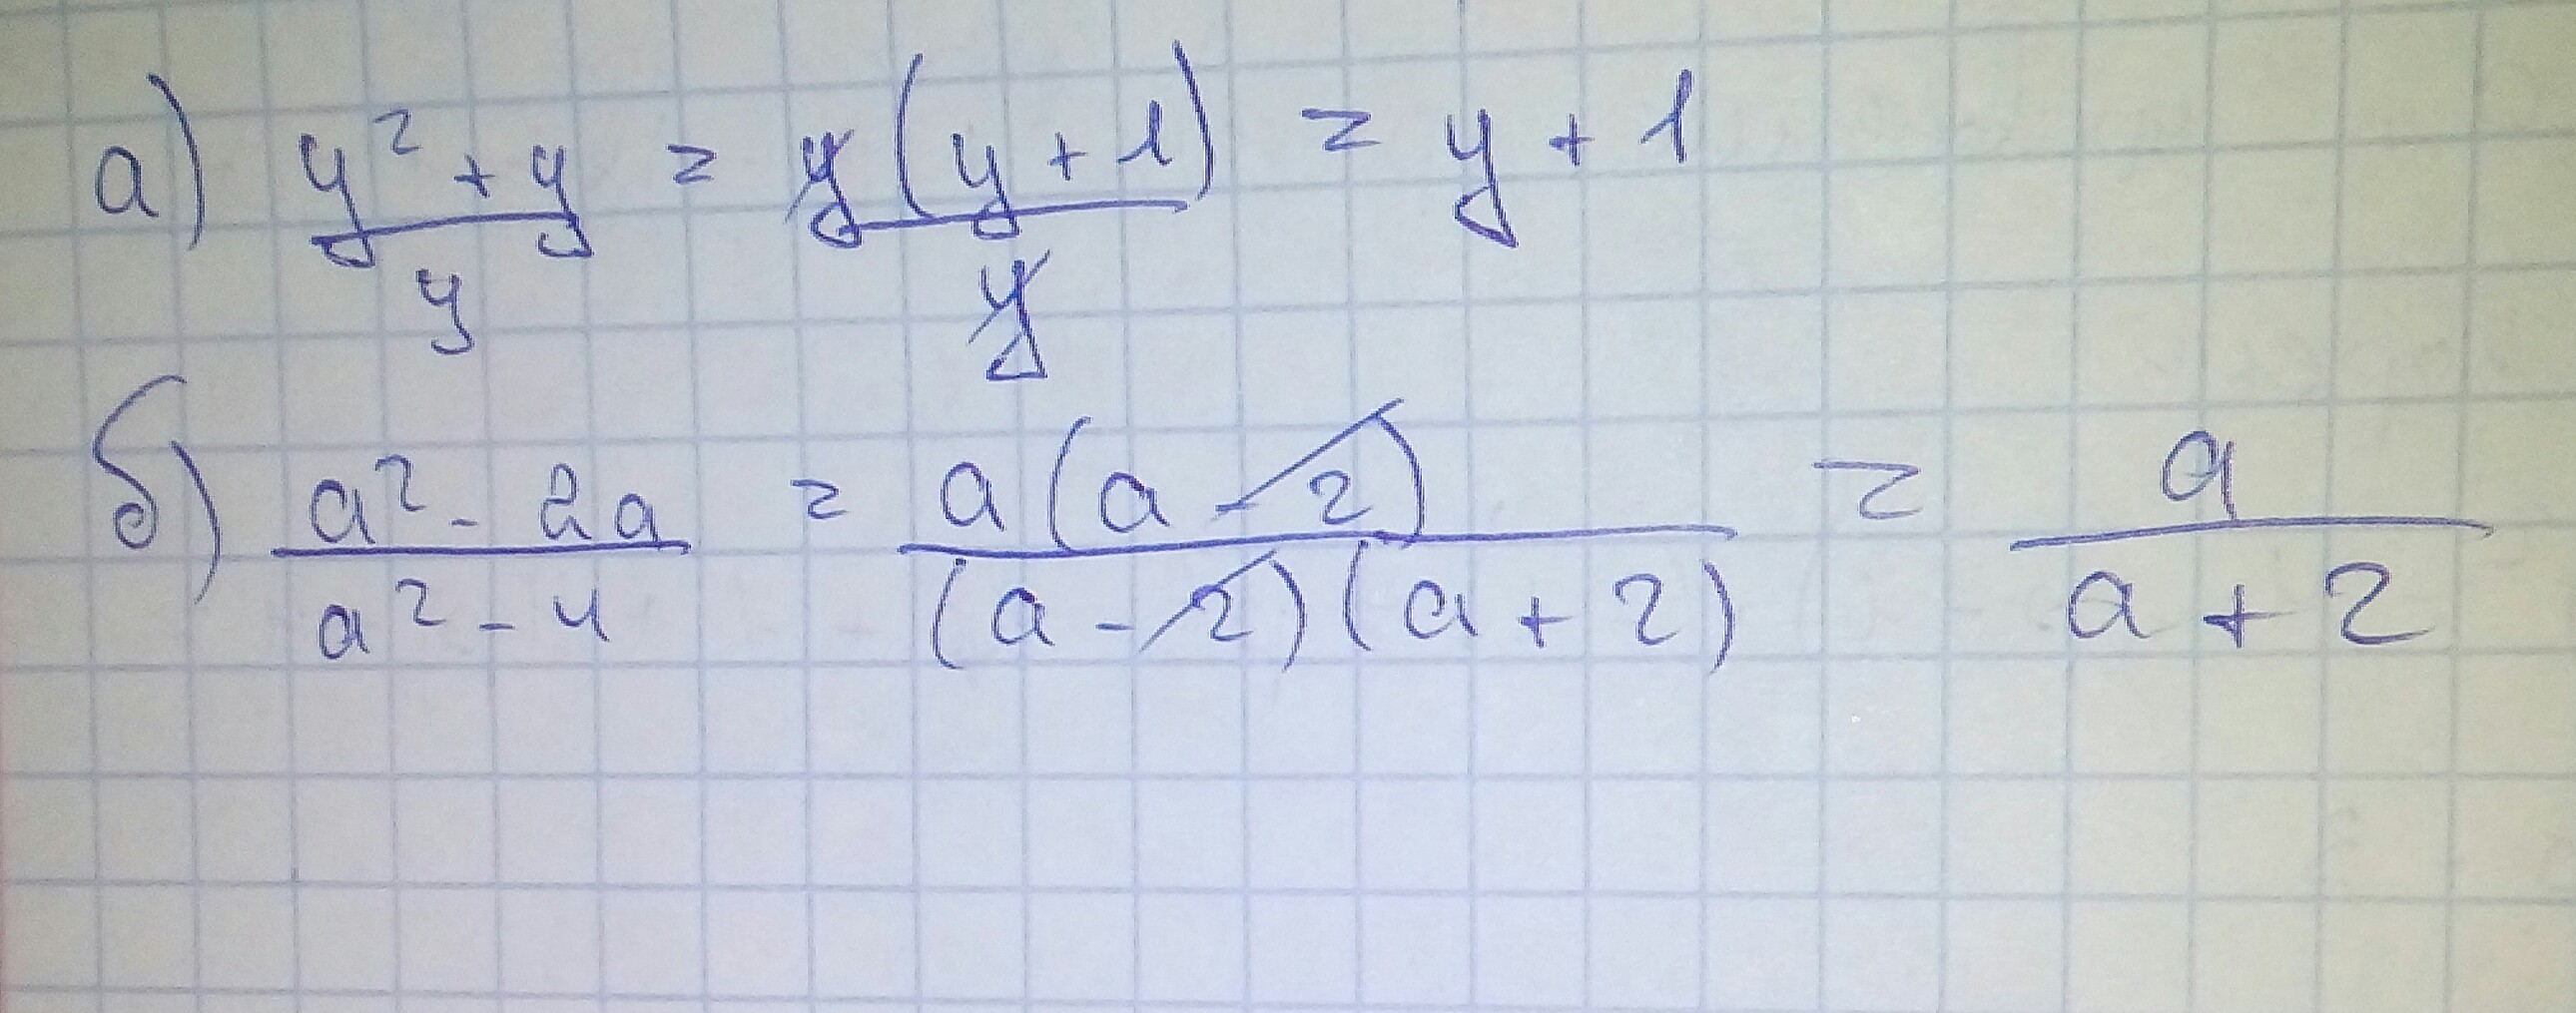 а) (y² + y)/y = y(y + 1)/y = y + 1
б) (a² - 2a)/(a² - 4) = a(a - 2)/((a - 2)(a + 2)) = a/(a + 2)